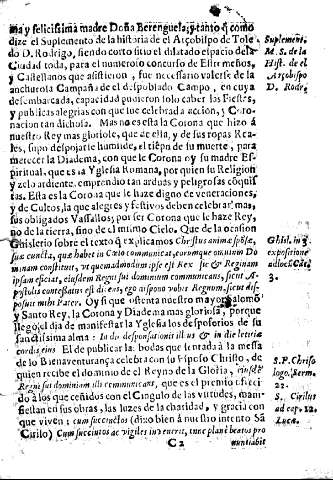 ma y felicissima madre Doña Berenguela; y tanto q̃ como
dize el Suplemento de la historia de el Arçobispo de Tole
do D. Rodrigo, siendo corto sitio el dilatado espacio de la
Ciudad toda, para el numeroso concurso de Estremeños,
y Castellanos que asistieron, fue necessario valerse de la
anchurosa Campaña de el despoblado Campo, en cuya
desembarcada, capacidad pudieron solo caber las Fiestas,
y publicas alegrias con que fue celebrada accion, y Coro-
nacion tan dichosa. Mas no es esta la Corona que hizo á
nuestro Rey mas glorioso, que de ella, y de sus ropas Rea-
les, supo despojarle humilde, el tiẽpo de su muerte, para
merecer la Diadema, con que le Coronó oy su madre Es-
piritual, que es la Yglesia Romana, por quien su Religion
y zelo ardiente emprendió tan arduas y peligrosas cõquis
tas. Esta es la Corona que le haze digno de veneraciones,
y de Cultos, la que alegres y festivos deben celebrar mas,
sus obligados Vassallos, por ser Corona que le haze Rey,
no de la tierra, sino de el mismo Cielo. Que de la ocasion
Ghislerio sobre el texto q̃ explicamos Christus animæ spõsæ,
suæ cuncta, quæ habet in Cælo communicat, coronamque omnium Do
minam constituit, ut quemadmodum ipse est Rex sic & Reginam
ipsam efficiat, eiusdem Regni sui dominium communicans, sicut A-
postolus contestatus est dicens, ego dispono vobis Regnum, sicut dis-
posuit mihi Pater. Oy si que ostenta nuestro mayor Salomõ
y Santo Rey, la Corona y Diadema mas gloriosa, porque
llegó el dia de manifestar la Yglesia los desposorios de su
sanctissima alma: In die desponsationis illius & in die lætitiæ
cordis eius. El de publicar las bodas que sentada á la messa
de lo Bienaventurança celebra con su Esposo Christo, de
quien recibe el dominio de el Reyno de la Gloria, eiusdẽ
Regni sui dominium illi communicans, que es el premio ofreci
do á los que ceñidos con el Cingulo de las virtudes, mani-
fiestan en sus obras, las luzes de la charidad, y gracia con
que viven: cum succinctus (dixo bien á nuestro intento Sã
Cirilo) Cum succinctos ac vigiles invenerit, tunc plane beatos pro
C2 nuntiabit
Suplemento.
M. S. de la
Hist. de el
Arçobispo
D. Rodr.
Ghisl. in 3
expositione
ad loc. Cãt.
3.
S. P. Chriso
logo. Serm.
22.
S. Cirilus
ad cap. 12.
Luca.